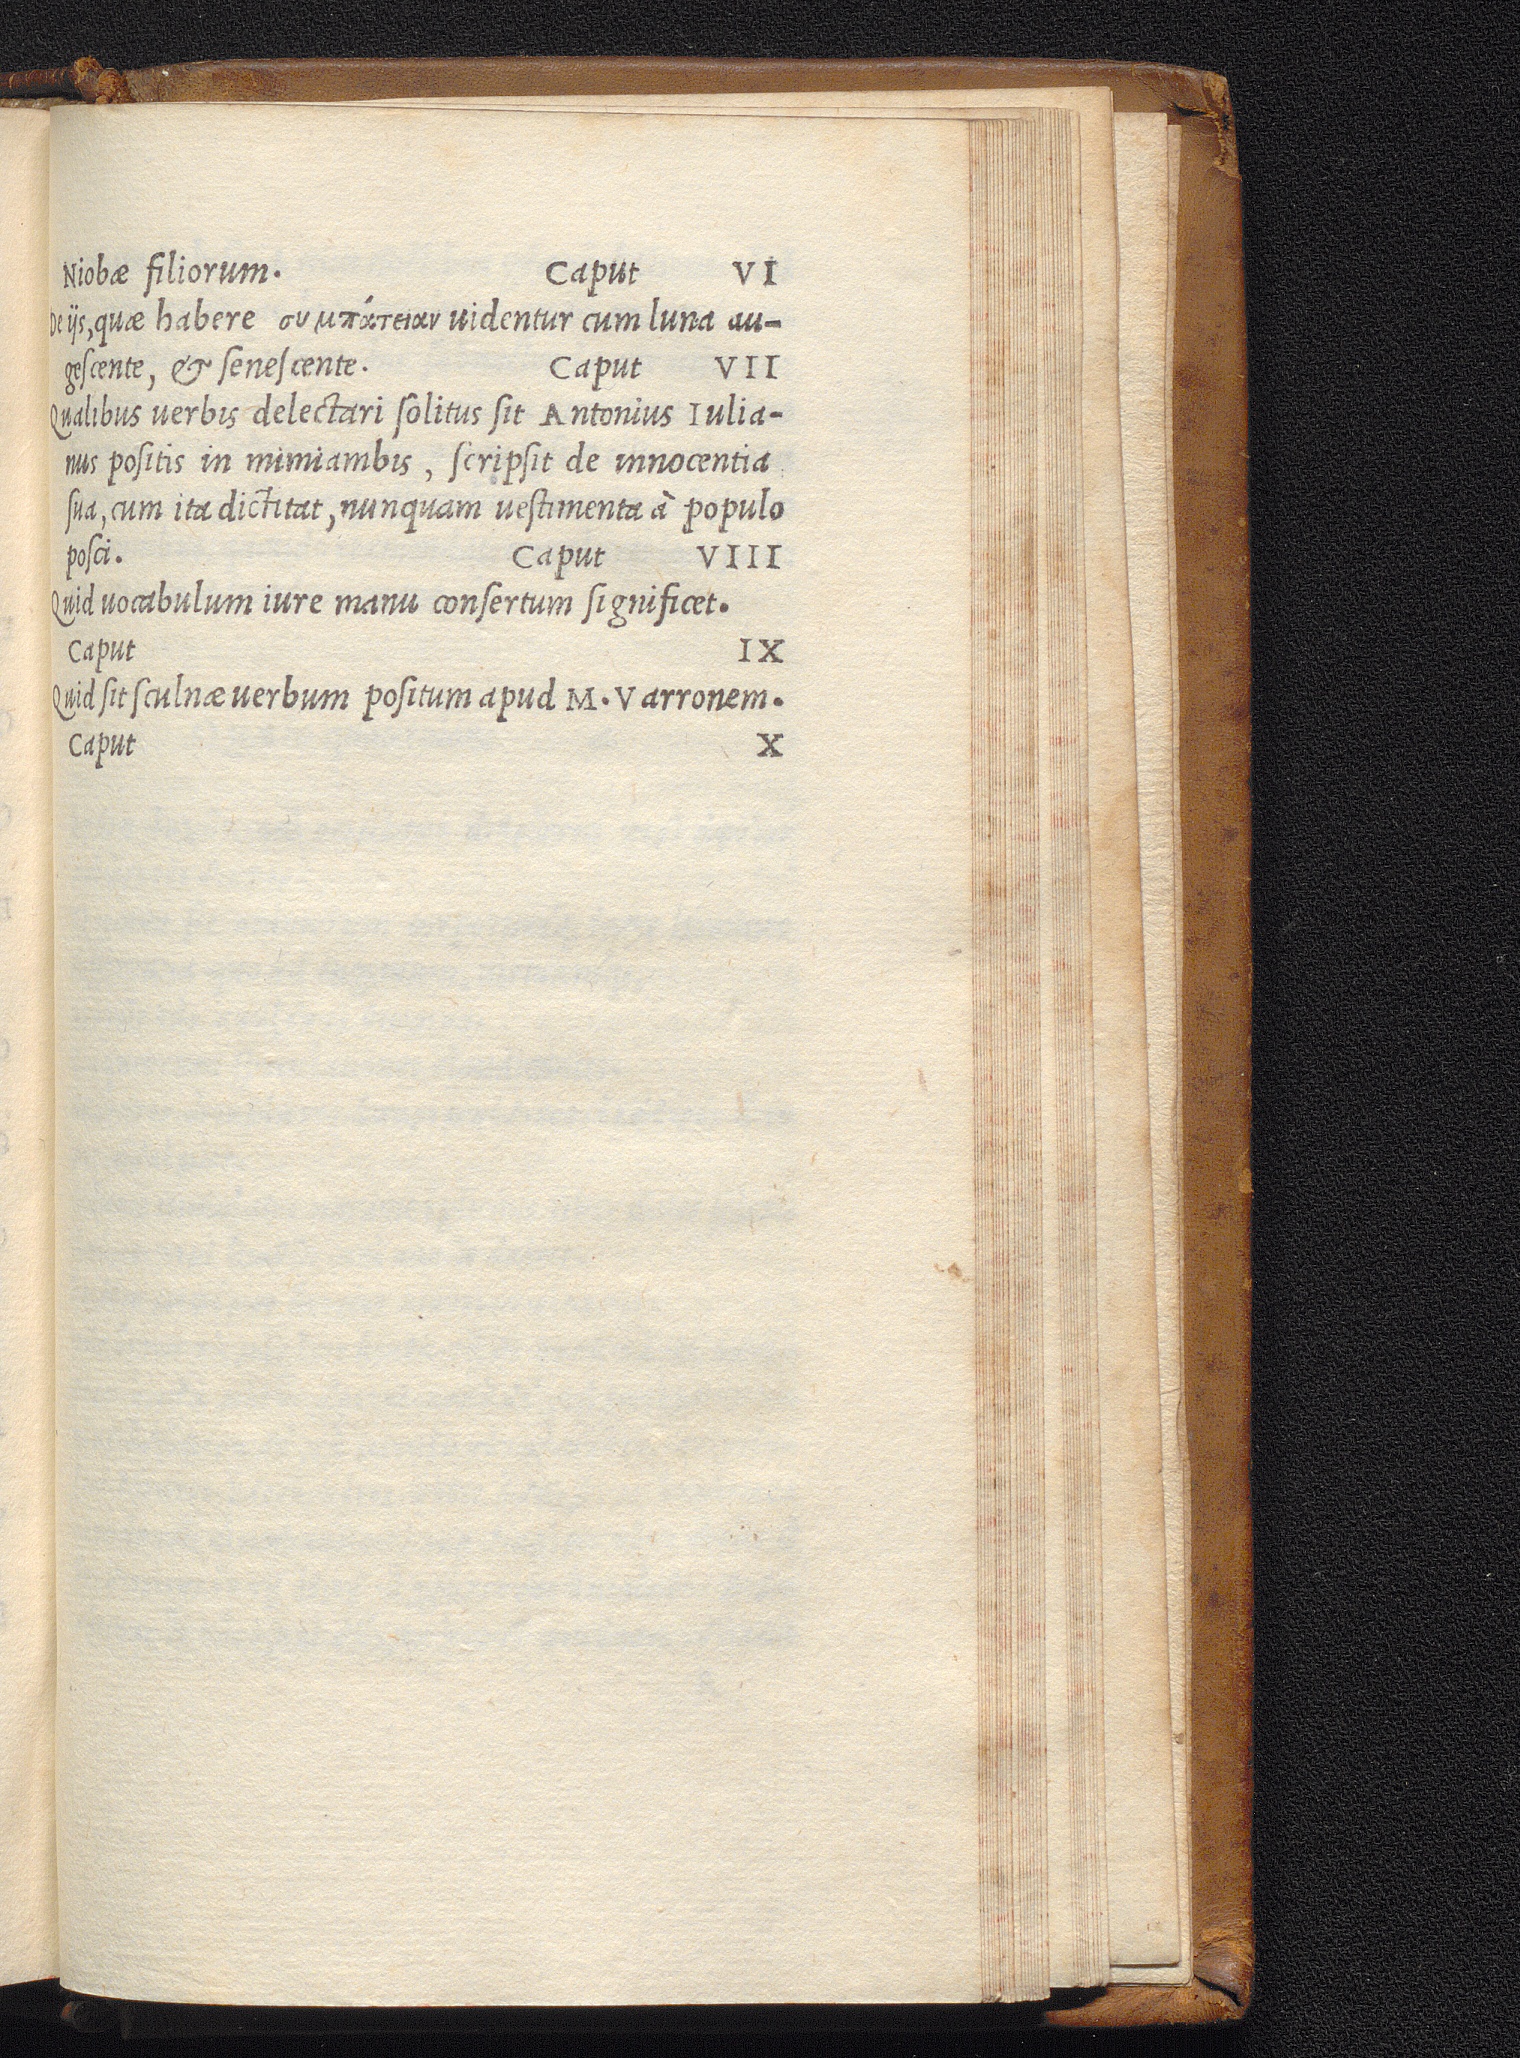 Niobæ filiorum. Caput VI
De ijs, quæ habere συμπάτειαν uidentur cum luna au-
geſcente, & ſeneſcente. Caput VII
Qualibus uerbis delectari ſolitus ſit Antonius Iulia-
nus poſitis in mimiambis, ſcripſit de innocentia
ſua, cum ita dictitat, nunquam ueſtimenta à populo
poſci. Caput VIII
Quid uocabulum iure manu conſertum ſignificet.
Caput IX
Quid ſit ſculnæ uerbum poſitum apud M. Varronem.
Caput X